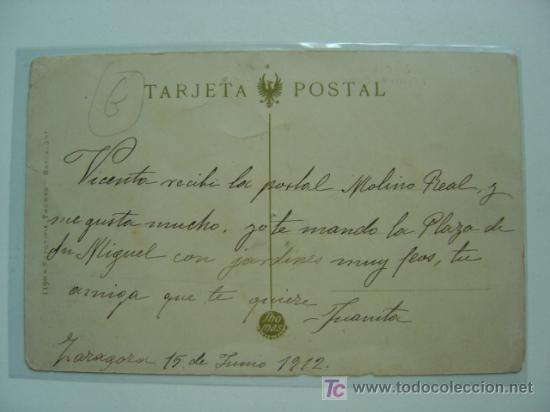 6
TARJETA POSTAL
Vicenta recibi la postal Molino Real, y
me gusta mucho. yo te mando la Plaza de
Sn Miguel con jardines muy feos, tu
amiga que te quiere
Juanita
Zaragoza 15 de Junio 1912.
Tho
mas
todocoleccion
www.todocoleccion.net